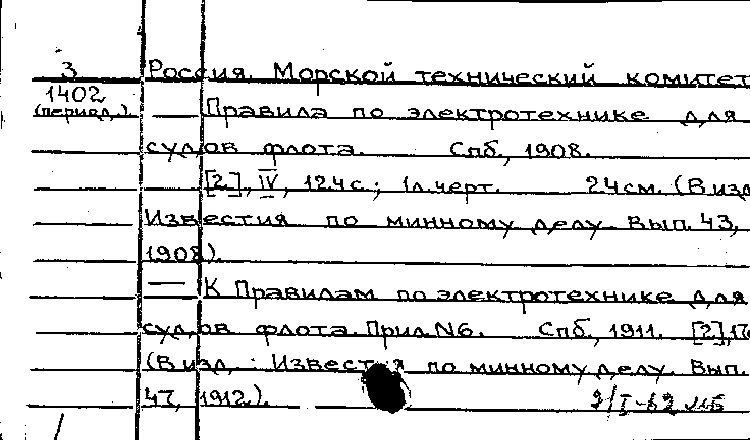 3 Россия. Морской технический комитет
1402
(период.) — Правила по электротехнике для
судов флота. Спб., 1908.
[2], IV, 124 с.; 1 л. черт. 24 см. (В изд
Известия по минному делу. Вып. 43,
1908).
— К Правилам по электротехнике для
судов флота. Прил. N6. Спб., 1911. [2], 17
(В изд. : Известия по минному делу. Вып.
47, 1912).